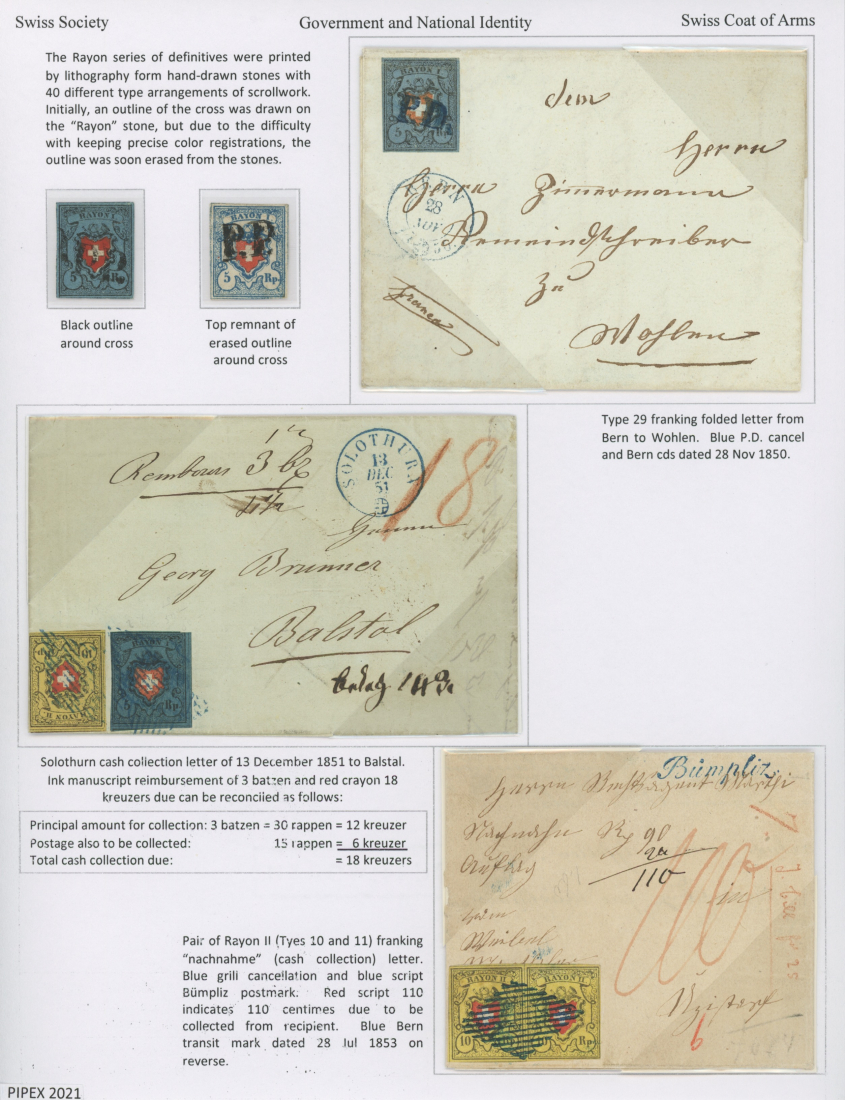 Swiss Society
Government and National Identity
Swiss Coat of Arms
The Rayon series of definitives were printed
by lithography form hand-drawn stones with
40 different type arrangements of scrollwork.
Initially, an outline of the cross was drawn on
the “Rayon” stone, but due to the difficulty
with keeping precise color registrations, the
outline was soon erased from the stones.
RAYON I
5 Rp.
Black outline
around cross
RAYON I
P.P.
5 Rp.
Top remnant of
erased outline
around cross
RAYON I
P.D.
5 Rp.
dem
Herrn
Herrn Zimmermann
BERN
28
NOV
Gemeindschreiber
zu
Wohlen
franco
Type 29 franking folded letter from
Bern to Wohlen. Blue P.D. cancel
and Bern cds dated 28 Nov 1850.
Rembours 3 bz
SOLOTHURN
13
DEC
51
18
Georg Brunner
Balstal
RAYON II
10
RAYON I
5 Rp.
Solothurn cash collection letter of 13 December 1851 to Balstal.
Ink manuscript reimbursement of 3 batzen and red crayon 18
kreuzers due can be reconciled as follows:
Principal amount for collection: 3 batzen = 30 rappen = 12 kreuzer
Postage also to be collected: 15 rappen = 6 kreuzer
Total cash collection due: = 18 kreuzers
Bümpliz
Herrn
Nachnahm Rp 90
20
110
in
110
RAYON II RAYON II
10 Rp.
6
Pair of Rayon II (Tyes 10 and 11) franking
“nachnahme” (cash collection) letter.
Blue grill cancellation and blue script
Bümpliz postmark. Red script 110
indicates 110 centimes due to be
collected from recipient. Blue Bern
transit mark dated 28 Jul 1853 on
reverse.
PIPEX 2021